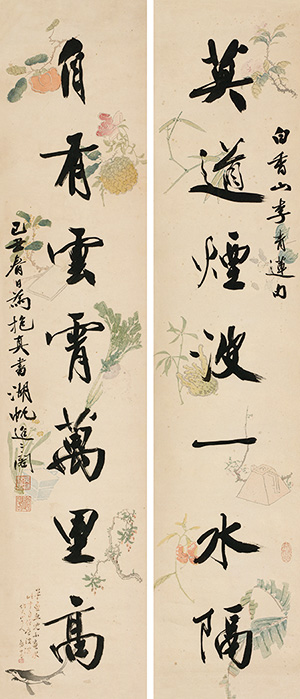 白香山李青蓮句
莫道煙波一水隔
自有雲霄萬里高
己丑春日為抱真書湖帆